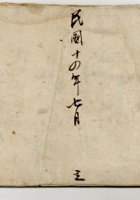 民國十四年七月
立